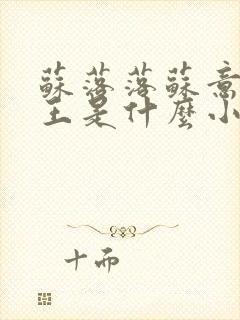 蘇落落蘇意
王是什麼小
十而